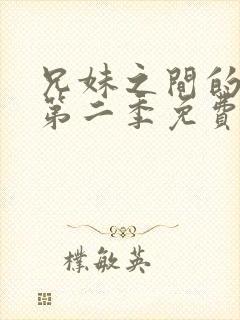 兄妹之間的
第二季免費
樸敏英